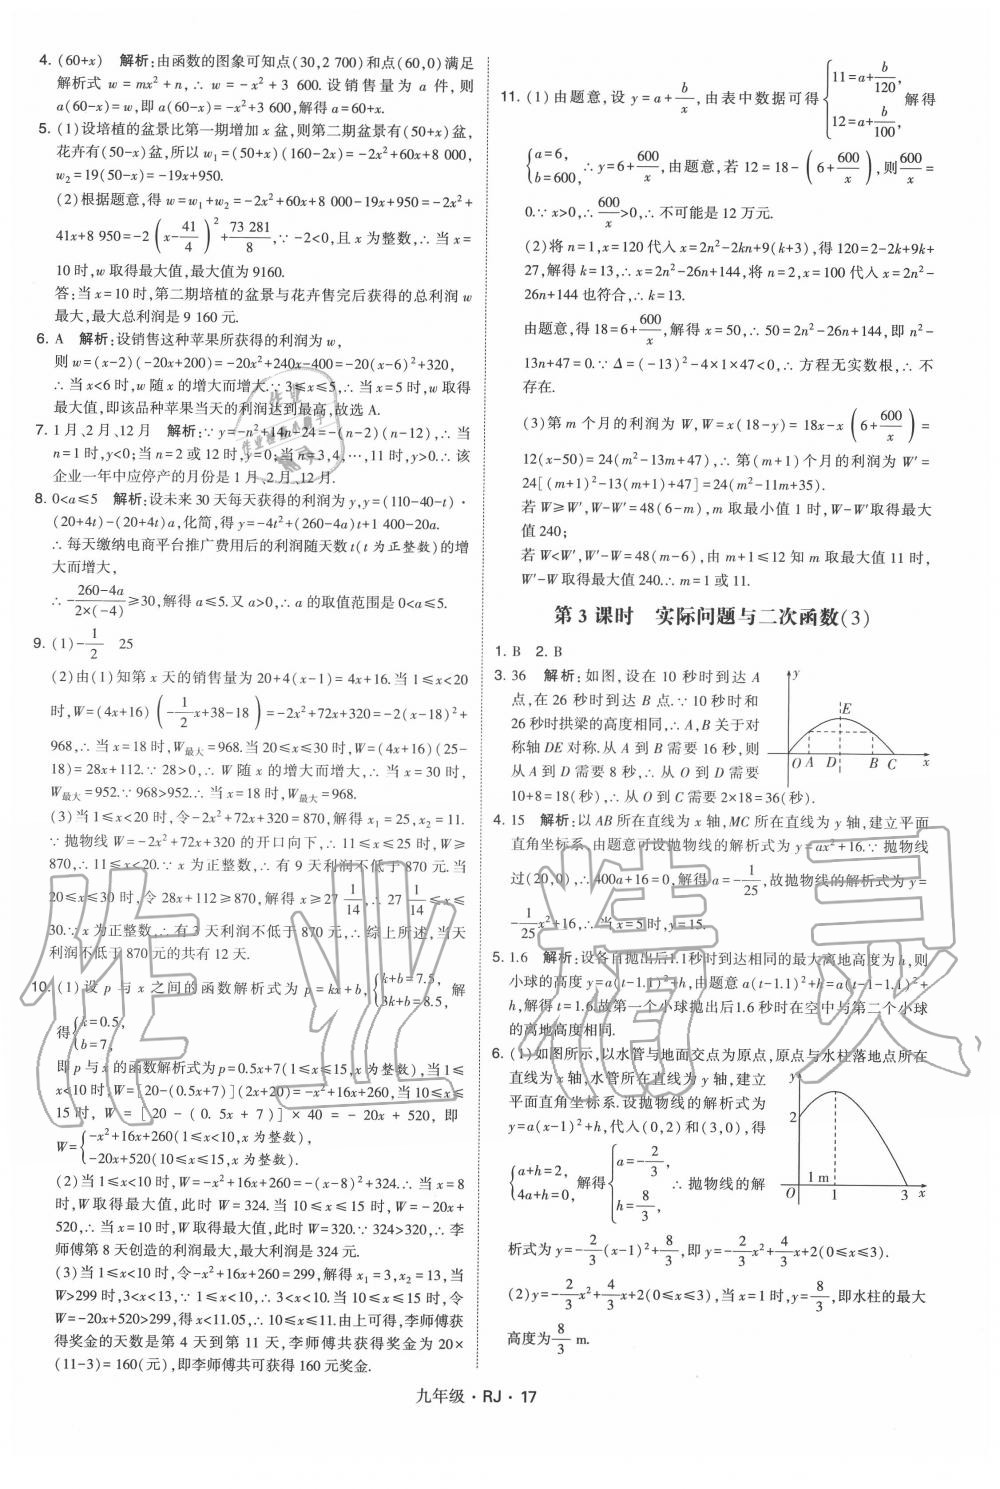 4. (60+x)　解析:由函数的图象可知点(30,2 700)和点(60,0)满足
解析式 w=mx²+n,∴w=-x²+3 600.设销售量为 a 件,则
a(60-x)=w,即 a(60-x)=-x²+3 600,解得 a=60+x.
5. (1)设培植的盆景比第一期增加 x 盆,则第二期盆景有(50+x)盆,
花卉有(50-x)盆,所以 w₁=(50+x)(160-2x)=-2x²+60x+8 000,
w₂=19(50-x)=-19x+950.
(2)根据题意,得 w=w₁+w₂=-2x²+60x+8 000-19x+950=-2x²+
41x+8 950=-2(x-41/4)²+73 281/8,∵-2<0,且 x 为整数,∴当 x=
10时,w取得最大值,最大值为9160.
答:当 x=10 时,第二期培植的盆景与花卉售完后获得的总利润 w
最大,最大总利润是 9 160 元.
6. A　解析:设销售这种苹果所获得的利润为 w,
则 w=(x-2)(-20x+200)=-20x²+240x-400=-20(x-6)²+320,
∴当 x<6 时,w 随 x 的增大而增大.∵3≤x≤5,∴当 x=5 时,w 取得
最大值,即该品种苹果当天的利润达到最高,故选 A.
7. 1月、2月、12月　解析:∵y=-n²+14n-24=-(n-2)(n-12),∴当
n=1 时,y<0;当 n=2 或 12 时,y=0;当 n=3,4,…,11 时,y>0.∴该
企业一年中应停产的月份是 1 月、2 月、12 月.
8. 0<a≤5　解析:设未来 30 天每天获得的利润为 y,y=(110-40-t)·
(20+4t)-(20+4t)a,化简,得 y=-4t²+(260-4a)t+1 400-20a.
∴每天缴纳电商平台推广费用后的利润随天数 t(t 为正整数)的增
大而增大,
∴-(260-4a)/(2×(-4))≥30,解得 a≤5.又 a>0,∴a 的取值范围是 0<a≤5.
9. (1)-1/2　25
(2)由(1)知第 x 天的销售量为 20+4(x-1)=4x+16.当 1≤x<20
时,W=(4x+16)(-1/2x+38-18)=-2x²+72x+320=-2(x-18)²+
968,∴当 x=18 时,W最大=968.当 20≤x≤30 时,W=(4x+16)(25-
18)=28x+112.∵28>0,∴W 随 x 的增大而增大,∴当 x=30 时,
W最大=952.∵968>952.∴当 x=18 时,W最大=968.
(3)当 1≤x<20 时,令-2x²+72x+320=870,解得 x₁=25,x₂=11.
∵抛物线 W=-2x²+72x+320 的开口向下,∴11≤x≤25 时,W≥
870,∴11≤x<20.∵x 为正整数,∴有 9 天利润不低于 870 元.当
20≤x≤30 时,令 28x+112≥870,解得 x≥27 1/14,∴27 1/14≤x≤
30.∵x 为正整数,∴有 3 天利润不低于 870 元,∴综上所述,当天
利润不低于870元的共有 12 天.
10. (1)设 p 与 x 之间的函数解析式为 p=kx+b,{k+b=7.5, 3k+b=8.5, 解
得{k=0.5, b=7,
即 p 与 x 的函数解析式为 p=0.5x+7(1≤x≤15,x 为整数),当 1≤
x<10 时,W=[20-(0.5x+7)](2x+20)=-x²+16x+260,当 10≤x≤
15 时, W = [20 - (0.5x + 7)] × 40 = - 20x + 520, 即
W={-x²+16x+260(1≤x<10,x 为整数), -20x+520(10≤x≤15,x 为整数).
(2)当 1≤x<10 时,W=-x²+16x+260=-(x-8)²+324.∴当 x=8
时,W 取得最大值,此时 W=324.当 10≤x≤15 时,W=-20x+
520,∴当 x=10 时,W取得最大值,此时 W=320.∵324>320,∴李
师傅第 8 天创造的利润最大,最大利润是 324 元.
(3)当 1≤x<10 时,令-x²+16x+260=299,解得 x₁=3,x₂=13,当
W>299 时,3<x<13,∵1≤x<10,∴3<x<10.当 10≤x≤15 时,令
W=-20x+520>299,得 x<11.05,∴10≤x≤11.由上可得,李师傅获
得奖金的天数是第 4 天到第 11 天,李师傅共获得奖金为 20×
(11-3)=160(元),即李师傅共可获得 160 元奖金.
11. (1)由题意,设 y=a+b/x,由表中数据可得{11=a+b/120, 12=a+b/100, 解得
{a=6, b=600, ∴y=6+600/x,由题意,若 12=18-(6+600/x),则600/x=
0.∵x>0,∴600/x>0,∴不可能是 12 万元.
(2)将 n=1,x=120 代入 x=2n²-2kn+9(k+3),得 120=2-2k+9k+
27,解得 k=13,∴x=2n²-26n+144,将 n=2,x=100 代入 x=2n²-
26n+144 也符合,∴k=13.
由题意,得 18=6+600/x,解得 x=50,∴50=2n²-26n+144,即 n²-
13n+47=0.∵Δ=(-13)²-4×1×47<0,∴方程无实数根,∴不
存在.
(3)第 m 个月的利润为 W,W=x(18-y)=18x-x(6+600/x)=
12(x-50)=24(m²-13m+47),∴第(m+1)个月的利润为 W′=
24[(m+1)²-13(m+1)+47]=24(m²-11m+35).
若 W≥W′,W-W′=48(6-m),m 取最小值 1 时,W-W′取得最大
值 240;
若 W<W′,W′-W=48(m-6),由 m+1≤12 知 m 取最大值 11 时,
W′-W 取得最大值 240.∴m=1 或 11.
第 3 课时　实际问题与二次函数(3)
1. B　2. B
3. 36　解析:如图,设在 10 秒时到达 A
点,在 26 秒时到达 B 点.∵10 秒时和
26 秒时拱梁的高度相同,∴A,B 关于对
称轴 DE 对称.从 A 到 B 需要 16 秒,则
从 A 到 D 需要 8 秒,∴从 O 到 D 需要
10+8=18(秒).∴从 O 到 C 需要 2×18=36(秒).
y
E
O A D B C x
4. 15　解析:以 AB 所在直线为 x 轴,MC 所在直线为 y 轴,建立平面
直角坐标系,由题意可设抛物线的解析式为 y=ax²+16.∵抛物线
过(20,0),∴400a+16=0,解得 a=-1/25,故抛物线的解析式为 y=
-1/25x²+16,∴当 x=5 时,y=15.
5. 1.6　解析:设各自抛出后1.1秒时到达相同的最大离地高度为 h,则
小球的高度 y=a(t-1.1)²+h,由题意 a(t-1.1)²+h=a(t-1-1.1)²+
h,解得 t=1.6.故第一个小球抛出后1.6 秒时在空中与第二个小球
的离地高度相同.
6. (1)如图所示,以水管与地面交点为原点,原点与水柱落地点所在
直线为 x 轴,水管所在直线为 y 轴,建立
平面直角坐标系.设抛物线的解析式为
y=a(x-1)²+h,代入(0,2)和(3,0),得
{a+h=2, 4a+h=0, 解得{a=-2/3, h=8/3, ∴抛物线的解
析式为 y=-2/3(x-1)²+8/3,即 y=-2/3x²+4/3x+2(0≤x≤3).
y
2
1 m
O 1 3 x
(2)y=-2/3x²+4/3x+2(0≤x≤3),当 x=1 时,y=8/3,即水柱的最大
高度为8/3 m.
九年级 · RJ · 17
作业精灵